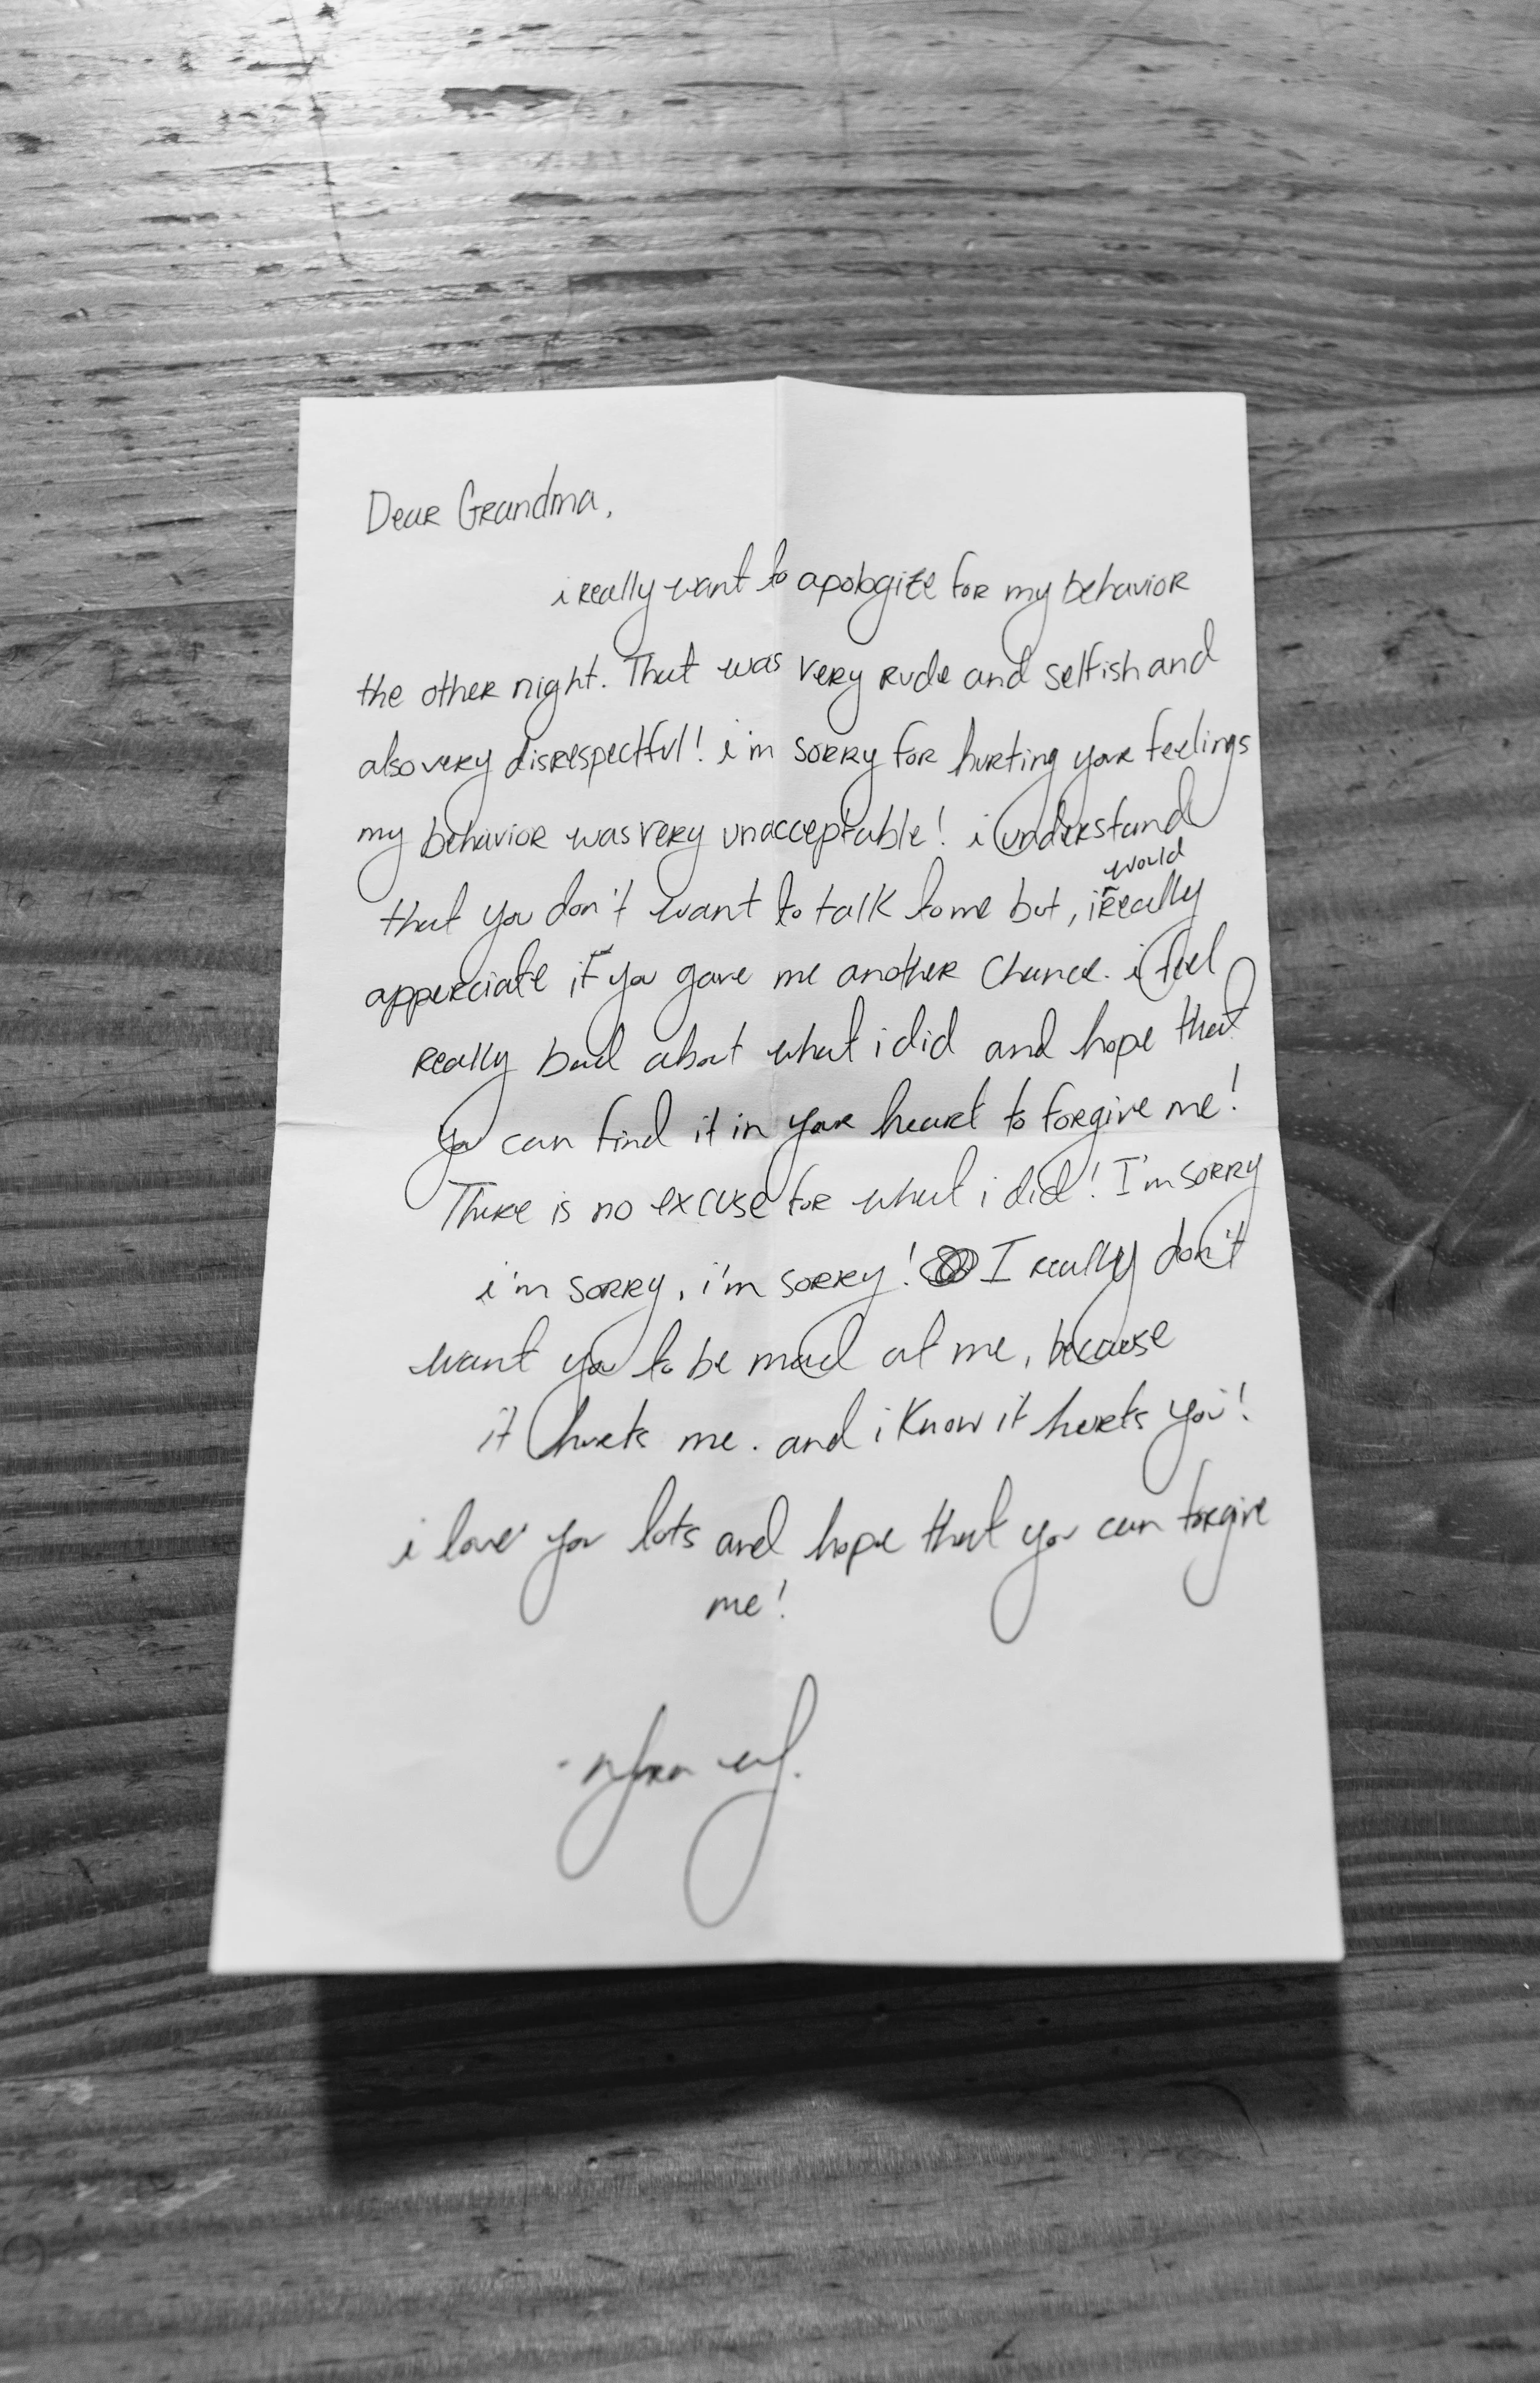 Dear Grandma,
i really want to apologize for my behavior
the other night. That was very rude and selfish and
also very disrespectful! i'm sorry for hurting your feelings
my behavior was very unacceptable! i understand
would
that you don't want to talk to me but, i really
apperciate if you gave me another chance. i feel
really bad about what i did and hope that
you can find it in your heart to forgive me!
There is no excuse for what i did! I'm sorry
i'm sorry, i'm sorry! I really don't
want you to be mad at me, because
it hurts me. and i know it hurts you!
i love you lots and hope that you can forgive
me!